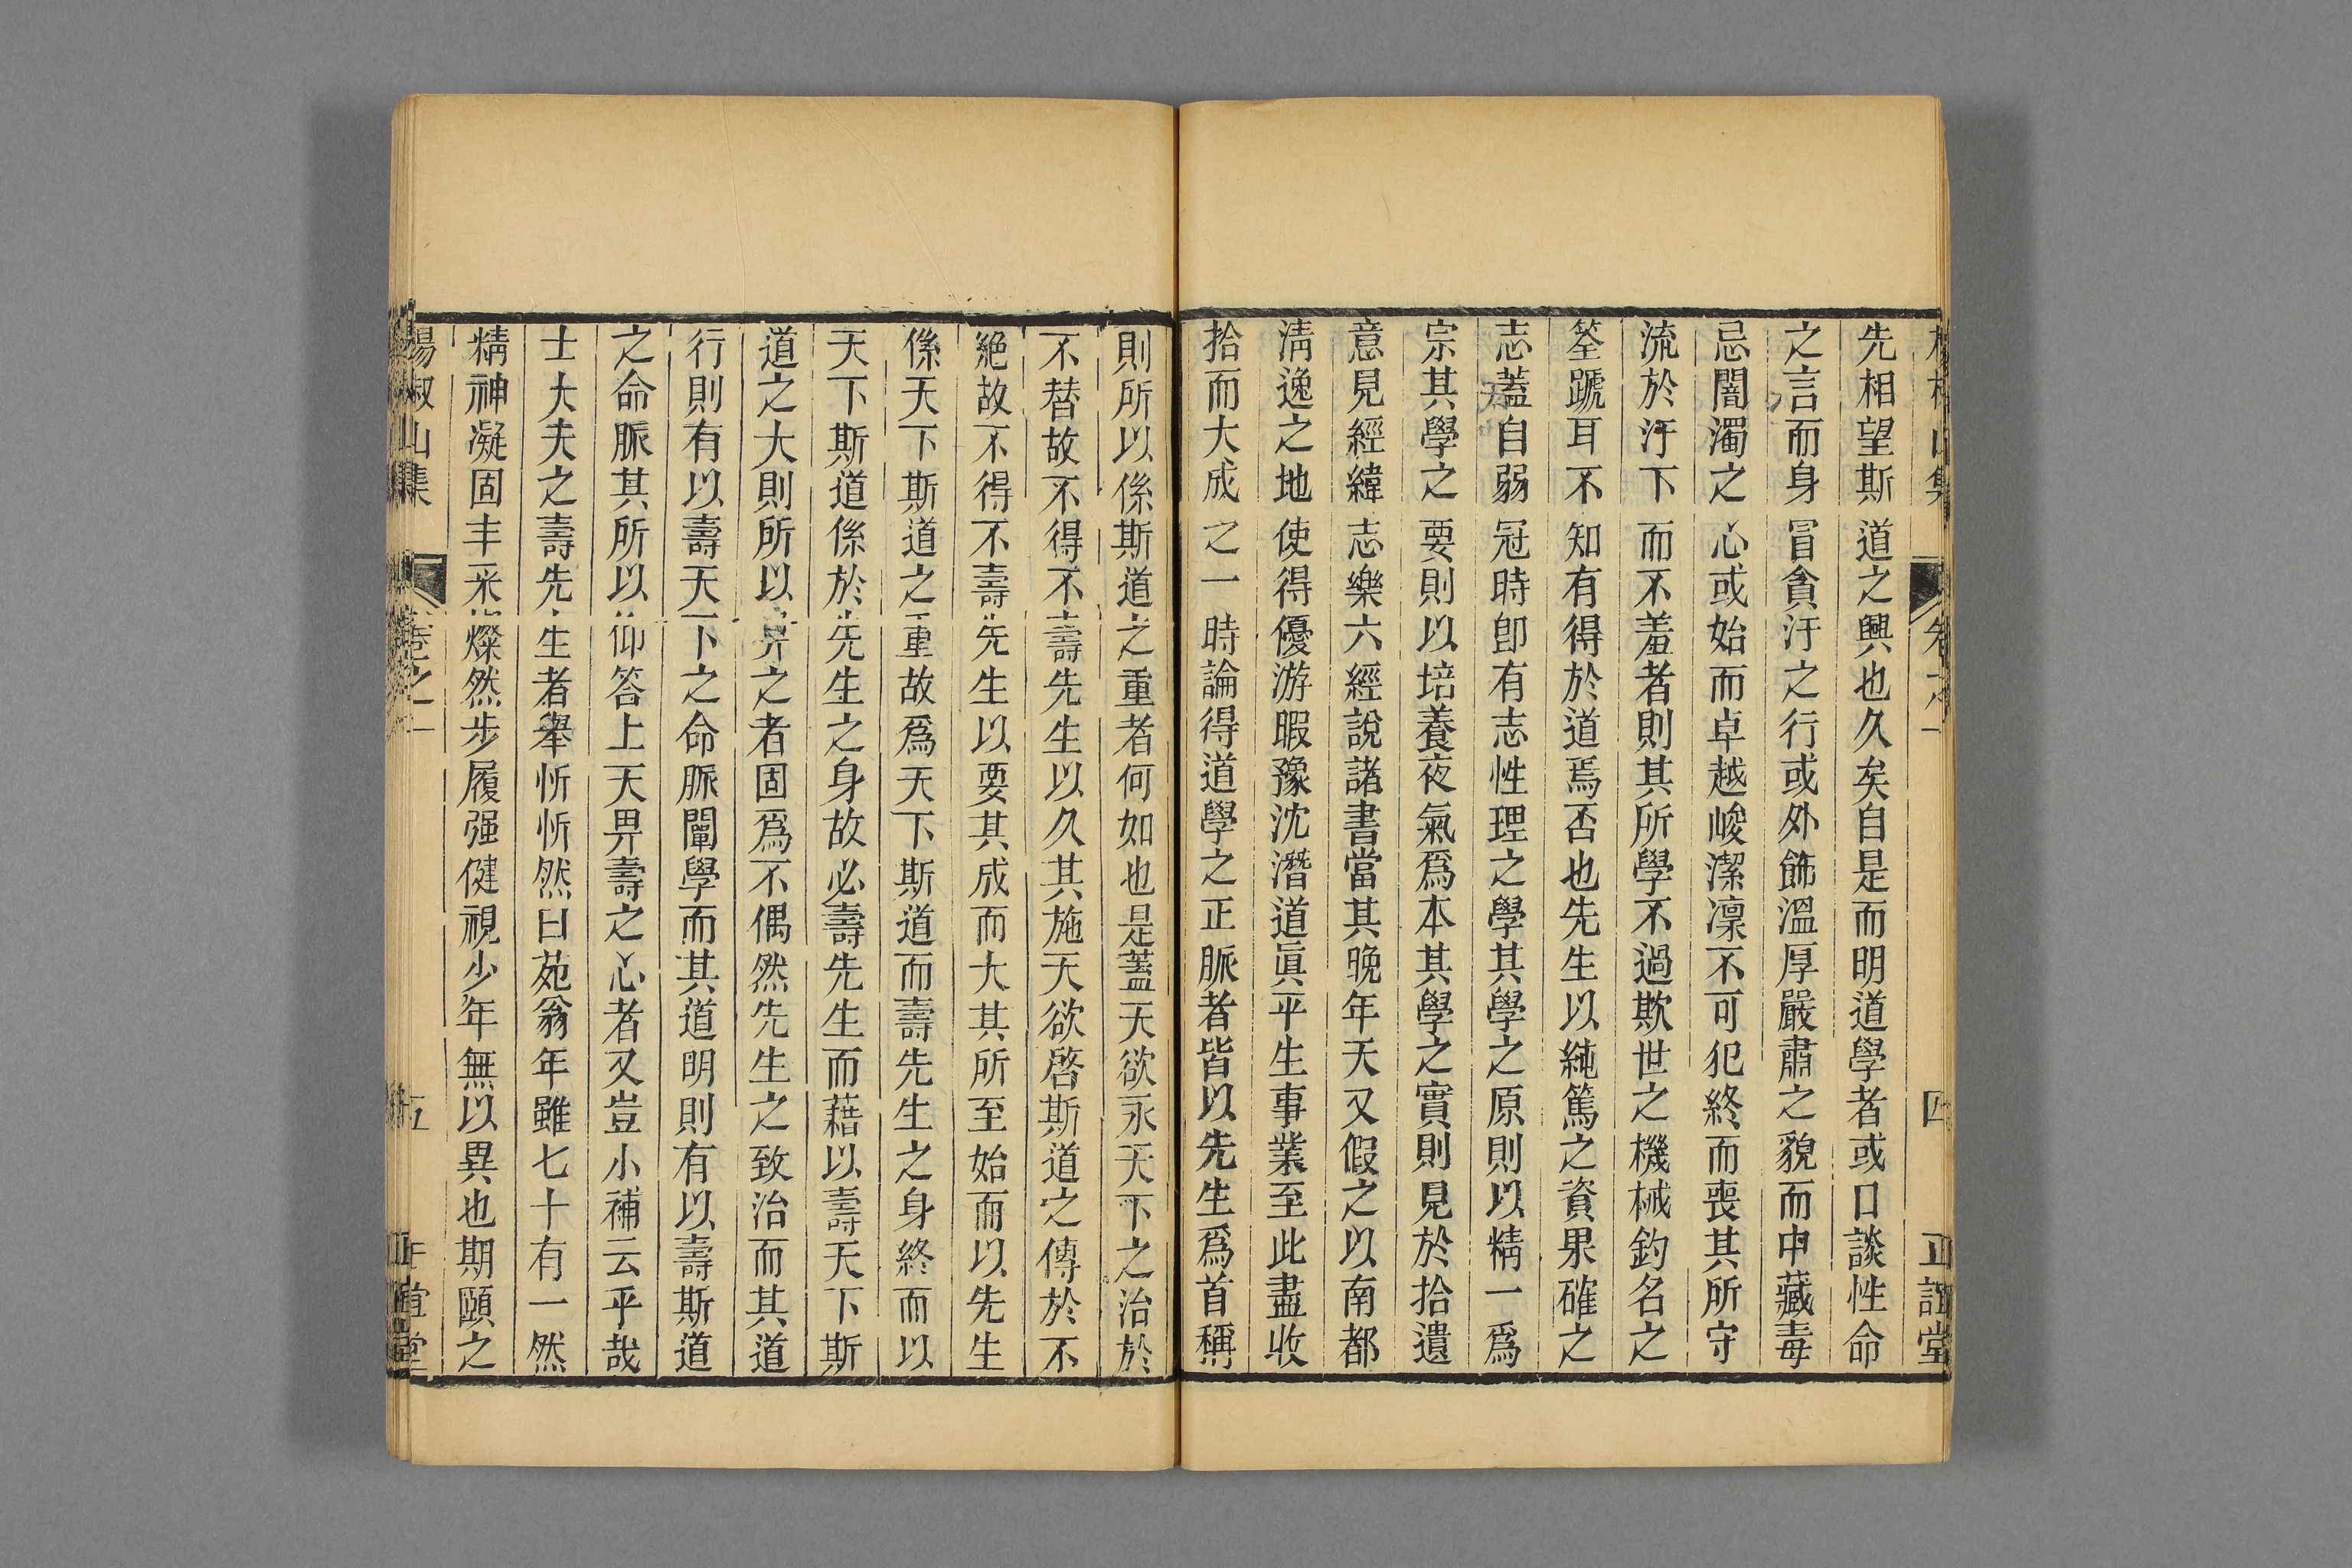 先相望斯道之興也久矣自是而明道學者或口談性命
之言而身冒貪汙之行或外飾溫厚嚴肅之貌而中藏毒
忌闇濁之心或始而卓越峻潔凛不可犯終而喪其所守
流於汙下而不羞者則其所學不過欺世之機械釣名之
筌蹏耳不知有得於道焉否也先生以純篤之資果確之
志蓋自弱冠時卽有志性理之學其學之原則以精一爲
宗其學之要則以培養夜氣爲本其學之實則見於拾遺
意見經緯志樂六經說諸書當其晚年天又假之以南都
淸逸之地使得優游暇豫沈潛道眞平生事業至此盡收
拾而大成之一時論得道學之正脈者皆以先生爲首稱
則所以係斯道之重者何如也是蓋天欲永天下之治於
不替故不得不壽先生以久其施天欲啓斯道之傳於不
絕故不得不壽先生以要其成而大其所至始而以先生
係天下斯道之重故爲天下斯道而壽先生之身終而以
天下斯道係於先生之身故必壽先生而藉以壽天下斯
道之大則所以畀之者固爲不偶然先生之致治而其道
行則有以壽天下之命脈闡學而其道明則有以壽斯道
之命脈其所以仰答上天畀壽之心者又豈小補云乎哉
士大夫之壽先生者舉忻忻然曰苑翁年雖七十有一然
精神凝固丰采燦然步履强健視少年無以異也期頤之
楊椒山集 卷之一 五 正誼堂